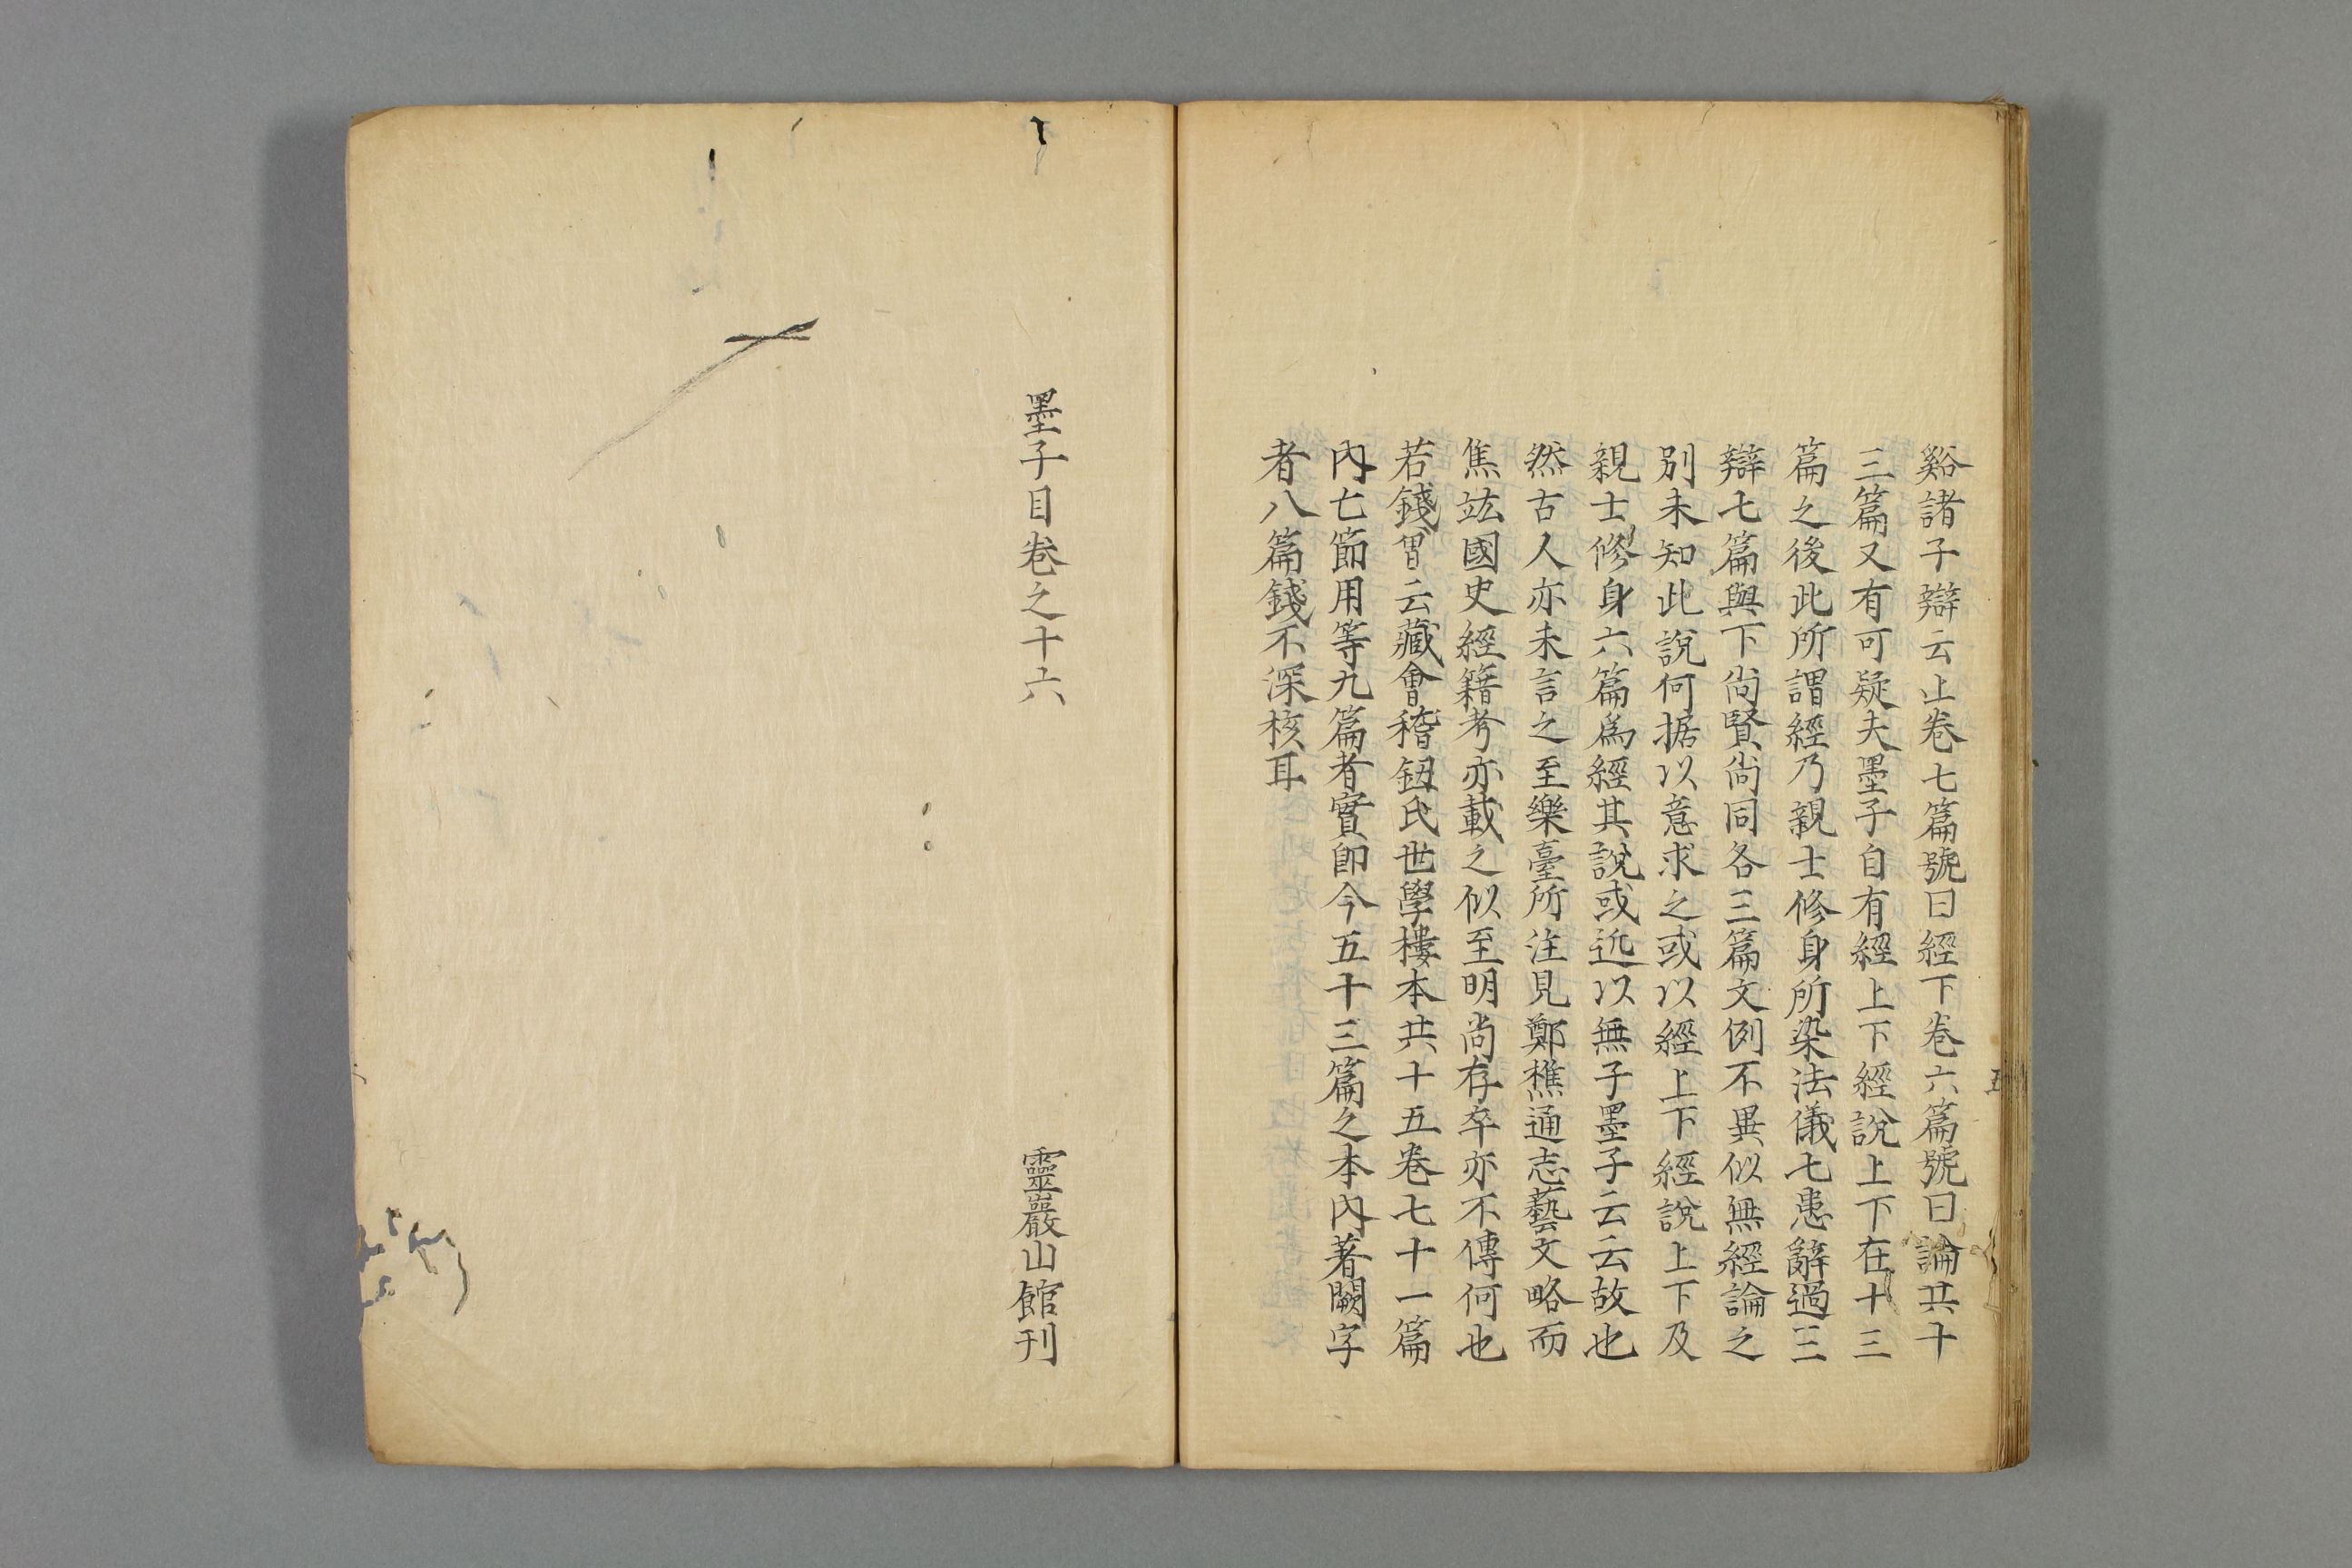 谿諸子辯云止卷七篇號曰經下卷六篇號曰論共十
三篇又有可疑夫墨子自有經上下經說上下在十三
篇之後此所謂經乃親士修身所染法儀七患辭過三
辯七篇與下尚賢尚同各三篇文例不異似無經論之
別未知此說何据以意求之或以經上下經說上下及
親士修身六篇爲經其說或近以無子墨子云云故也
然古人亦未言之至樂臺所注見鄭樵通志藝文略而
焦竑國史經籍考亦載之似至明尚存卒亦不傳何也
若錢曾云藏會稽鈕氏世學樓本共十五卷七十一篇
內七節用等九篇者實卽今五十三篇之本內著闕字
者八篇錢不深核耳
五
墨子目卷之十六
靈巖山館刊